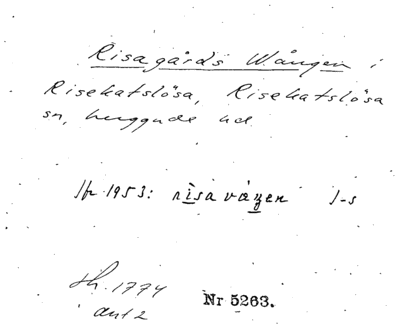 Risagårds Wången i
Risekatslösa, Risekatslösa
sn, Luggude hd
Hr 1953: risavāŋen I-s
sk. 1774
akt 2
Nr 5263.